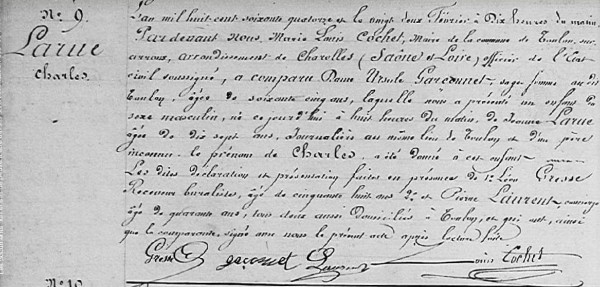 No 9.
Larue
Charles.
L'an mil huit cent soixante quatorze et le vingt deux Février à Dix heures du matin
Pardevant Nous, Marie Louis Cochet, Maire de la commune de Toulon sur
arroux, arrondissement de Charolles (Saône et Loire) officier de l'Etat
civil soussigné, a comparu Dame Ursule Garconnet, sage femme au dit
Toulon, âgée de soixante cinq ans, laquelle nous a présenté un enfant du
sexe masculin, né ce jourd'hui à huit heures du matin, de Jeanne Larue
âgée de dix sept ans, Journalière au même lieu de Toulon et d'un père
inconnu. le prénom de Charles a été donné à cet enfant
Les dites déclaration et présentation faites en présence de 1o Léon Grosse
Receveur buraliste, âgé de cinquante huit ans 2o et Pierre Laurent
âgé de quarante ans, tous deux aussi domiciliés à Toulon, et qui ont, ainsi
que la comparante, signé avec nous le présent acte après lecture faite
Grosse Laurent Cochet
No 10